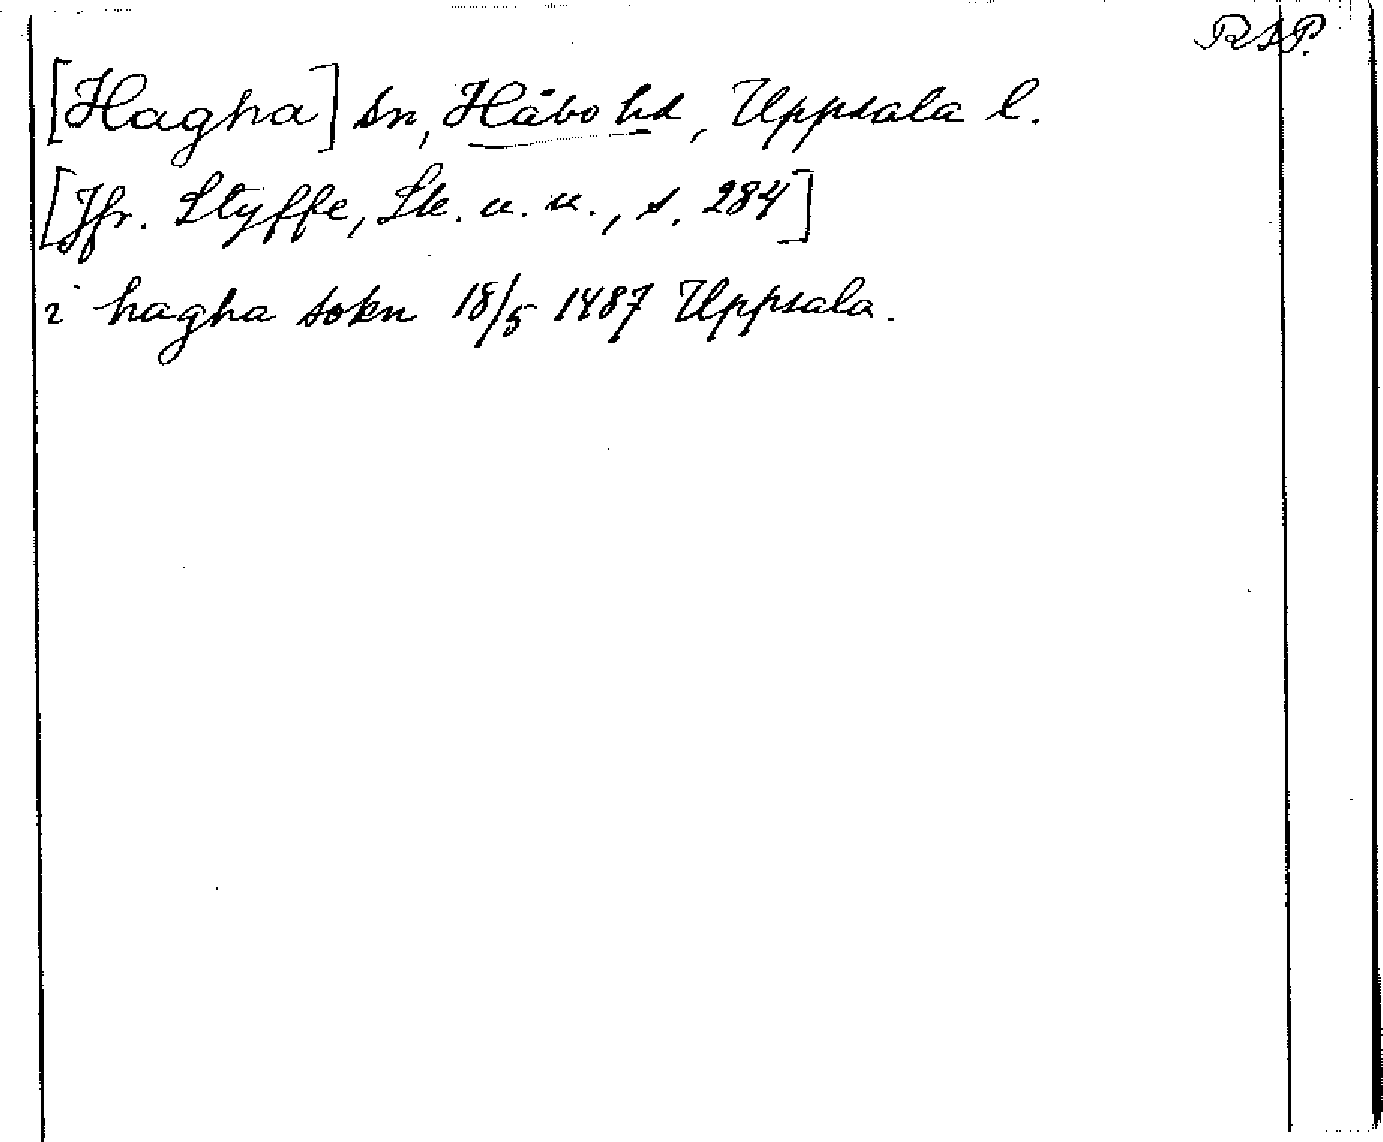 RAP.
[Hagha] sn, Håbo hd, Uppsala l.
[Jfr. Styffe, Sk. u. u., s. 284]
i hagha sokn 18/5 1487 Uppsala.